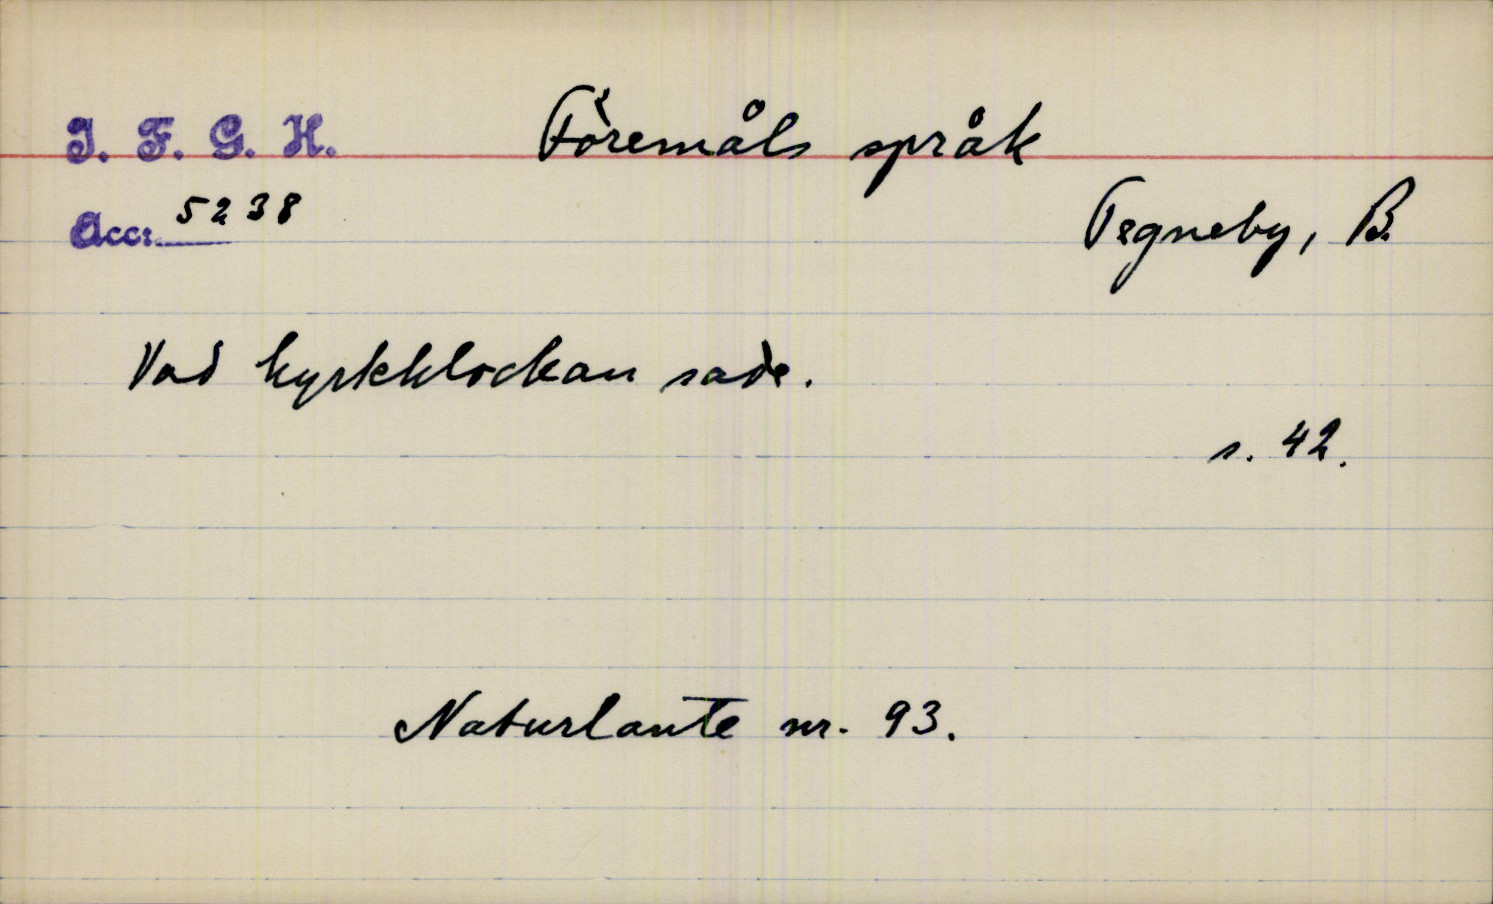 I. F. G. H. Föremåls språk
Acc: 5238
Tegneby, B.
Vad kyrkklockan sade.
s. 42.
Naturlaute nr. 93.